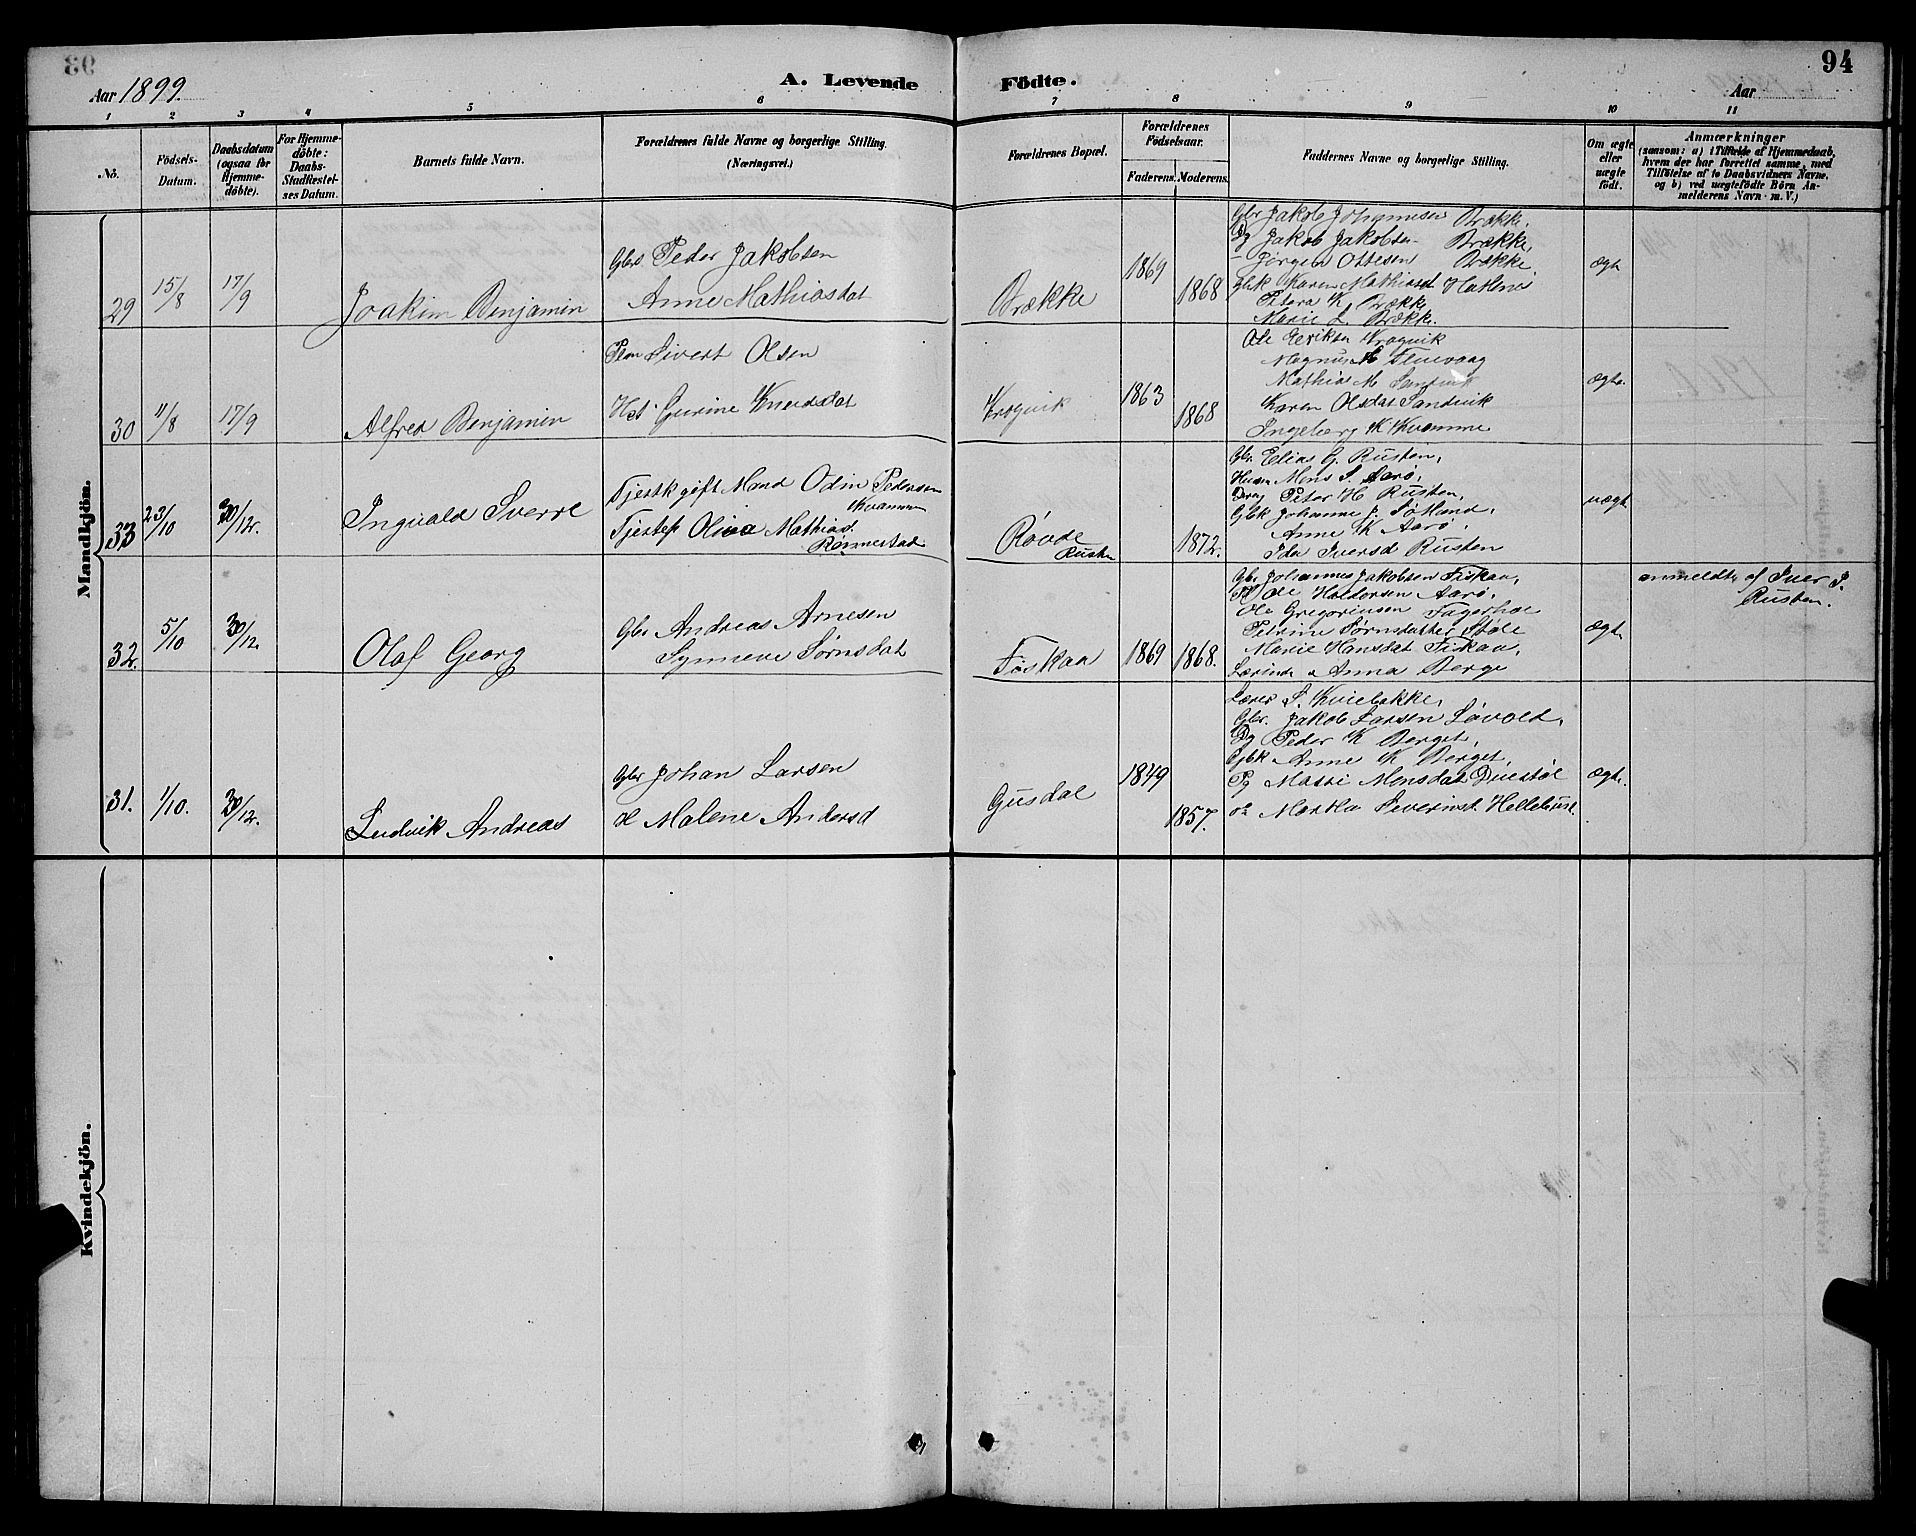 94
Aar 1899.
A. Levende Födte.
Aar
1 2 3 4 5 6 7 8 9 10 11
No.
Födsels-Datum.
Daabsdatum (ogsaa for Hjemmedöbte).
For Hjemmedöbte: Daabs-Stadfæstelses Datum.
Barnets fulde Navn.
Forældrenes fulde Navne og borgerlige Stilling. (Næringsvei.)
Forældrenes Bopæl.
Forældrenes Födselsaar.
Faderens. Moderens.
Faddernes Navne og borgerlige Stilling.
Om ægte eller uægte födt.
Anmærkninger
(saasom: a) i Tilfælde af Hjemmedaab, hvem der har forrettet samme, med Tilföielse af to Daabsvidners Navne, og b) ved uægtefödte Börn Anmelderens Navn m. V.)
Mandkjön.
29 15/8 17/9 Joakim Benjamin
Gbr Peder Jakobsen
Anne Mathiasdat
Brække 1869 1868
Gbr Jakob Johannesen Brække
Pg Jakob Jakobsen Brække
– Jørgen Ottesen Brække
Gbk Karen Mathiasd Hatlene
Petera K. Brække
Marie L. Brække.
ægt
30 11/8 17/9 Alfred Benjamin
Sivert Olsen
Gurine Knudsdat
Krogvik 1863 1868
Ole Eriksen Krogvik
Magnus Fluevaag
Mathias M Sandvik
Karen Olsdat Sandvik
Ingeborg K Kvamme
ægte.
33 23/10 30/12. Ingvald Sverre
Tjestk gift Mand Odin Pedersen Kvamme
Tjestep Oliva Mathiasd. Rönnestad
Røvde Rusten 1872.
Gbr. Elias G. Rusten,
Mons S. Aarø,
Peter H. Rusten,
Gbk Johanne P. Søtland,
Anne K Aarø,
Ida Iversd Rusten
uægt.
32. 5/10 30/12. Olaf Georg
Gbr Andreas Arnesen
Synneve Sørnsdat
Fiskaa 1869 1868.
Gbr Johannes Jakobsen Fiskaa,
Ole Haldorsen Aarø,
Ole Gregoriusen Fagerhol
Petrine Sørnsdatter Støle
Marie Hansdat Fiskaa,
Lærinde Anna Berge
ægt.
anmeldt af Iver P. Rusten.
31. 1/10. 30/12. Ludvik Andreas
Gbr Johan Larsen
Malene Andersd
Gusdal 1849 1857.
Lærer S. Kviebakke,
Gbr. Jakob Larsen Løvold,
Pg Peder K Berget,
Gbk Anne K Berget,
Pg Massi Monsdat Duestøl
Marta Severinsd Hellebust
ægt.
Kvindekjön.